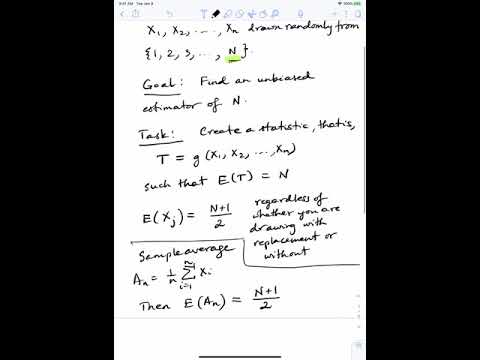 9:41 AM Tue Jan 9
100%
X₁, X₂, ..., Xₙ drawn randomly from
{1, 2, 3, ..., N}.
Goal: Find an unbiased
estimator of N.
Task: Create a statistic, that is,
T = g (X₁, X₂, ..., Xₙ)
such that E(T) = N
E(Xⱼ) = N+1/2 regardless of whether you are drawing with replacement or without
Sample average
Aₙ = 1/n Σᵢ₌₁ⁿ Xᵢ
Then E(Aₙ) = N+1/2